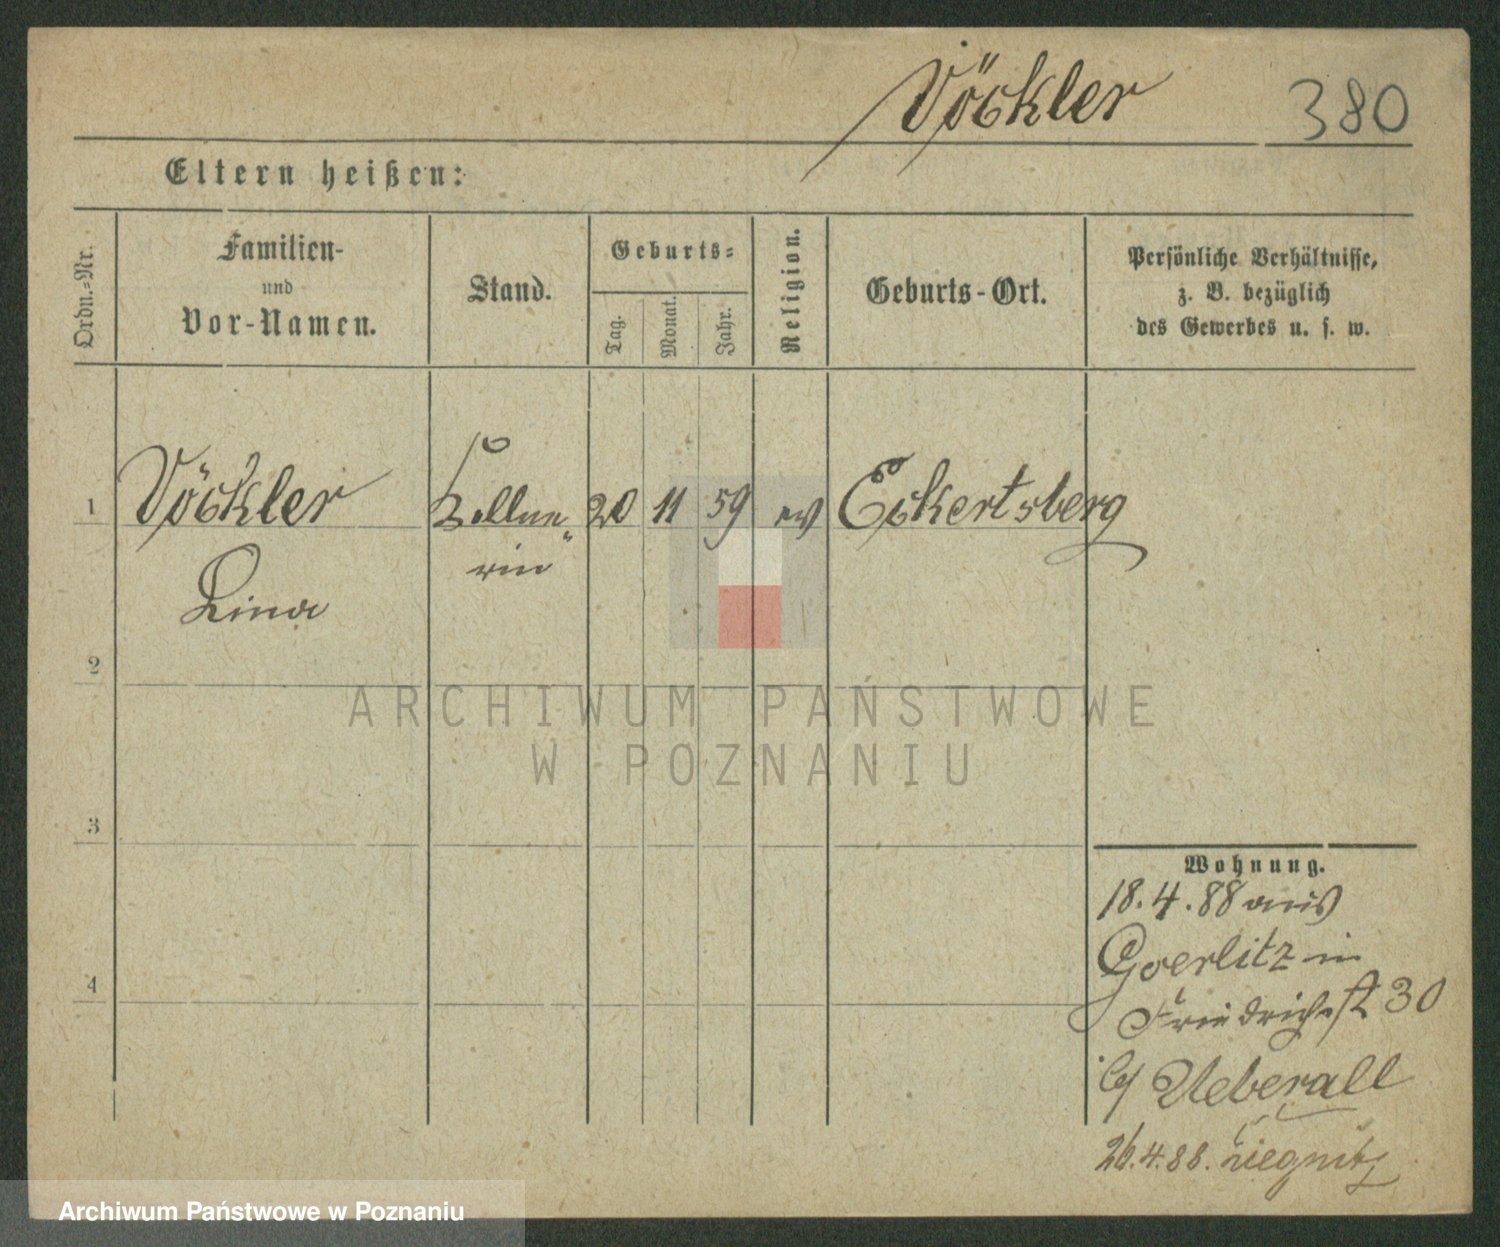 Vöckler 380
Eltern heißen:
Ordn.=Nr.
Familien-
und
Vor-Namen.
Stand.
Geburts=
Tag.
Monat.
Jahr.
Religion.
Geburts-Ort.
Persönliche Verhältnisse,
z. B. bezüglich
des Gewerbes u. s. w.
1 Vöckler Kellne 20 11 59 ev Eckertsberg
Lina
rin
2
3
4
ARCHIWUM PAŃSTWOWE
W POZNANIU
Wohnung.
18.4.88 aus
Goerlitz in
Friedrichst 30
b/ Ueberall
26.4.88. Liegnitz
Archiwum Państwowe w Poznaniu